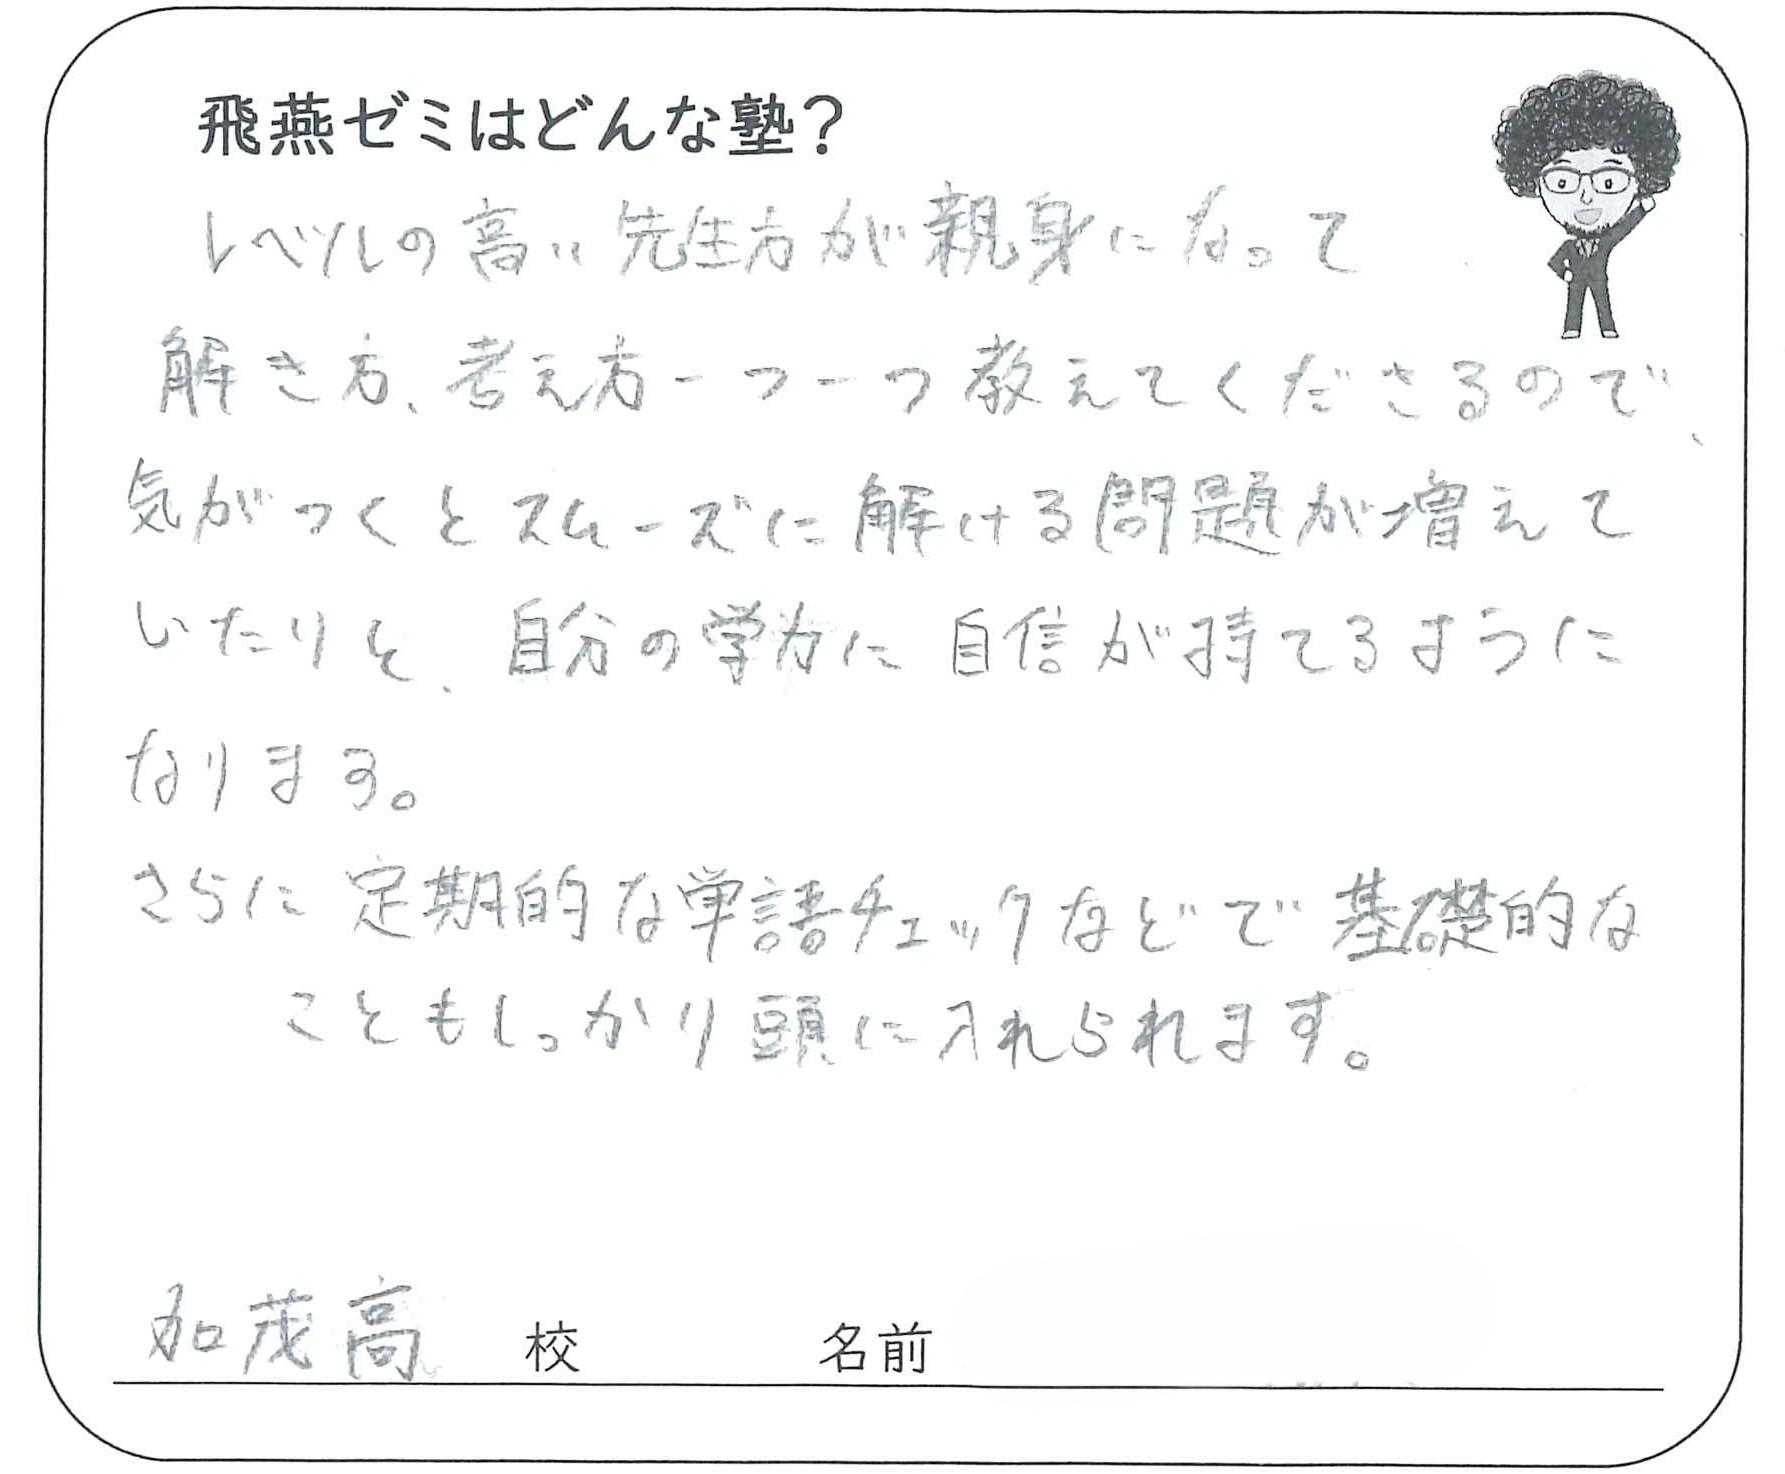 飛燕ゼミはどんな塾？
レベルの高い先生方が親身になって
解き方、考え方一つ一つ教えてくださるので、
気がつくとスムーズに解ける問題が増えて
いたりと、自分の学力に自信が持てるように
なります。
さらに定期的な単語チェックなどで基礎的な
こともしっかり頭に入れられます。
加茂高 校 名前